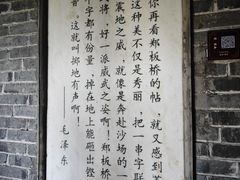 你再看郑板桥的帖，就又感到苍
这种美不仅是秀丽，把一串字联
震地之威，就像是奔赴沙场的一
将，好一派威武之姿啊！郑板桥
字都有份量，掉在地上能砸出铿
音。这就叫掷地有声啊！
——毛泽东